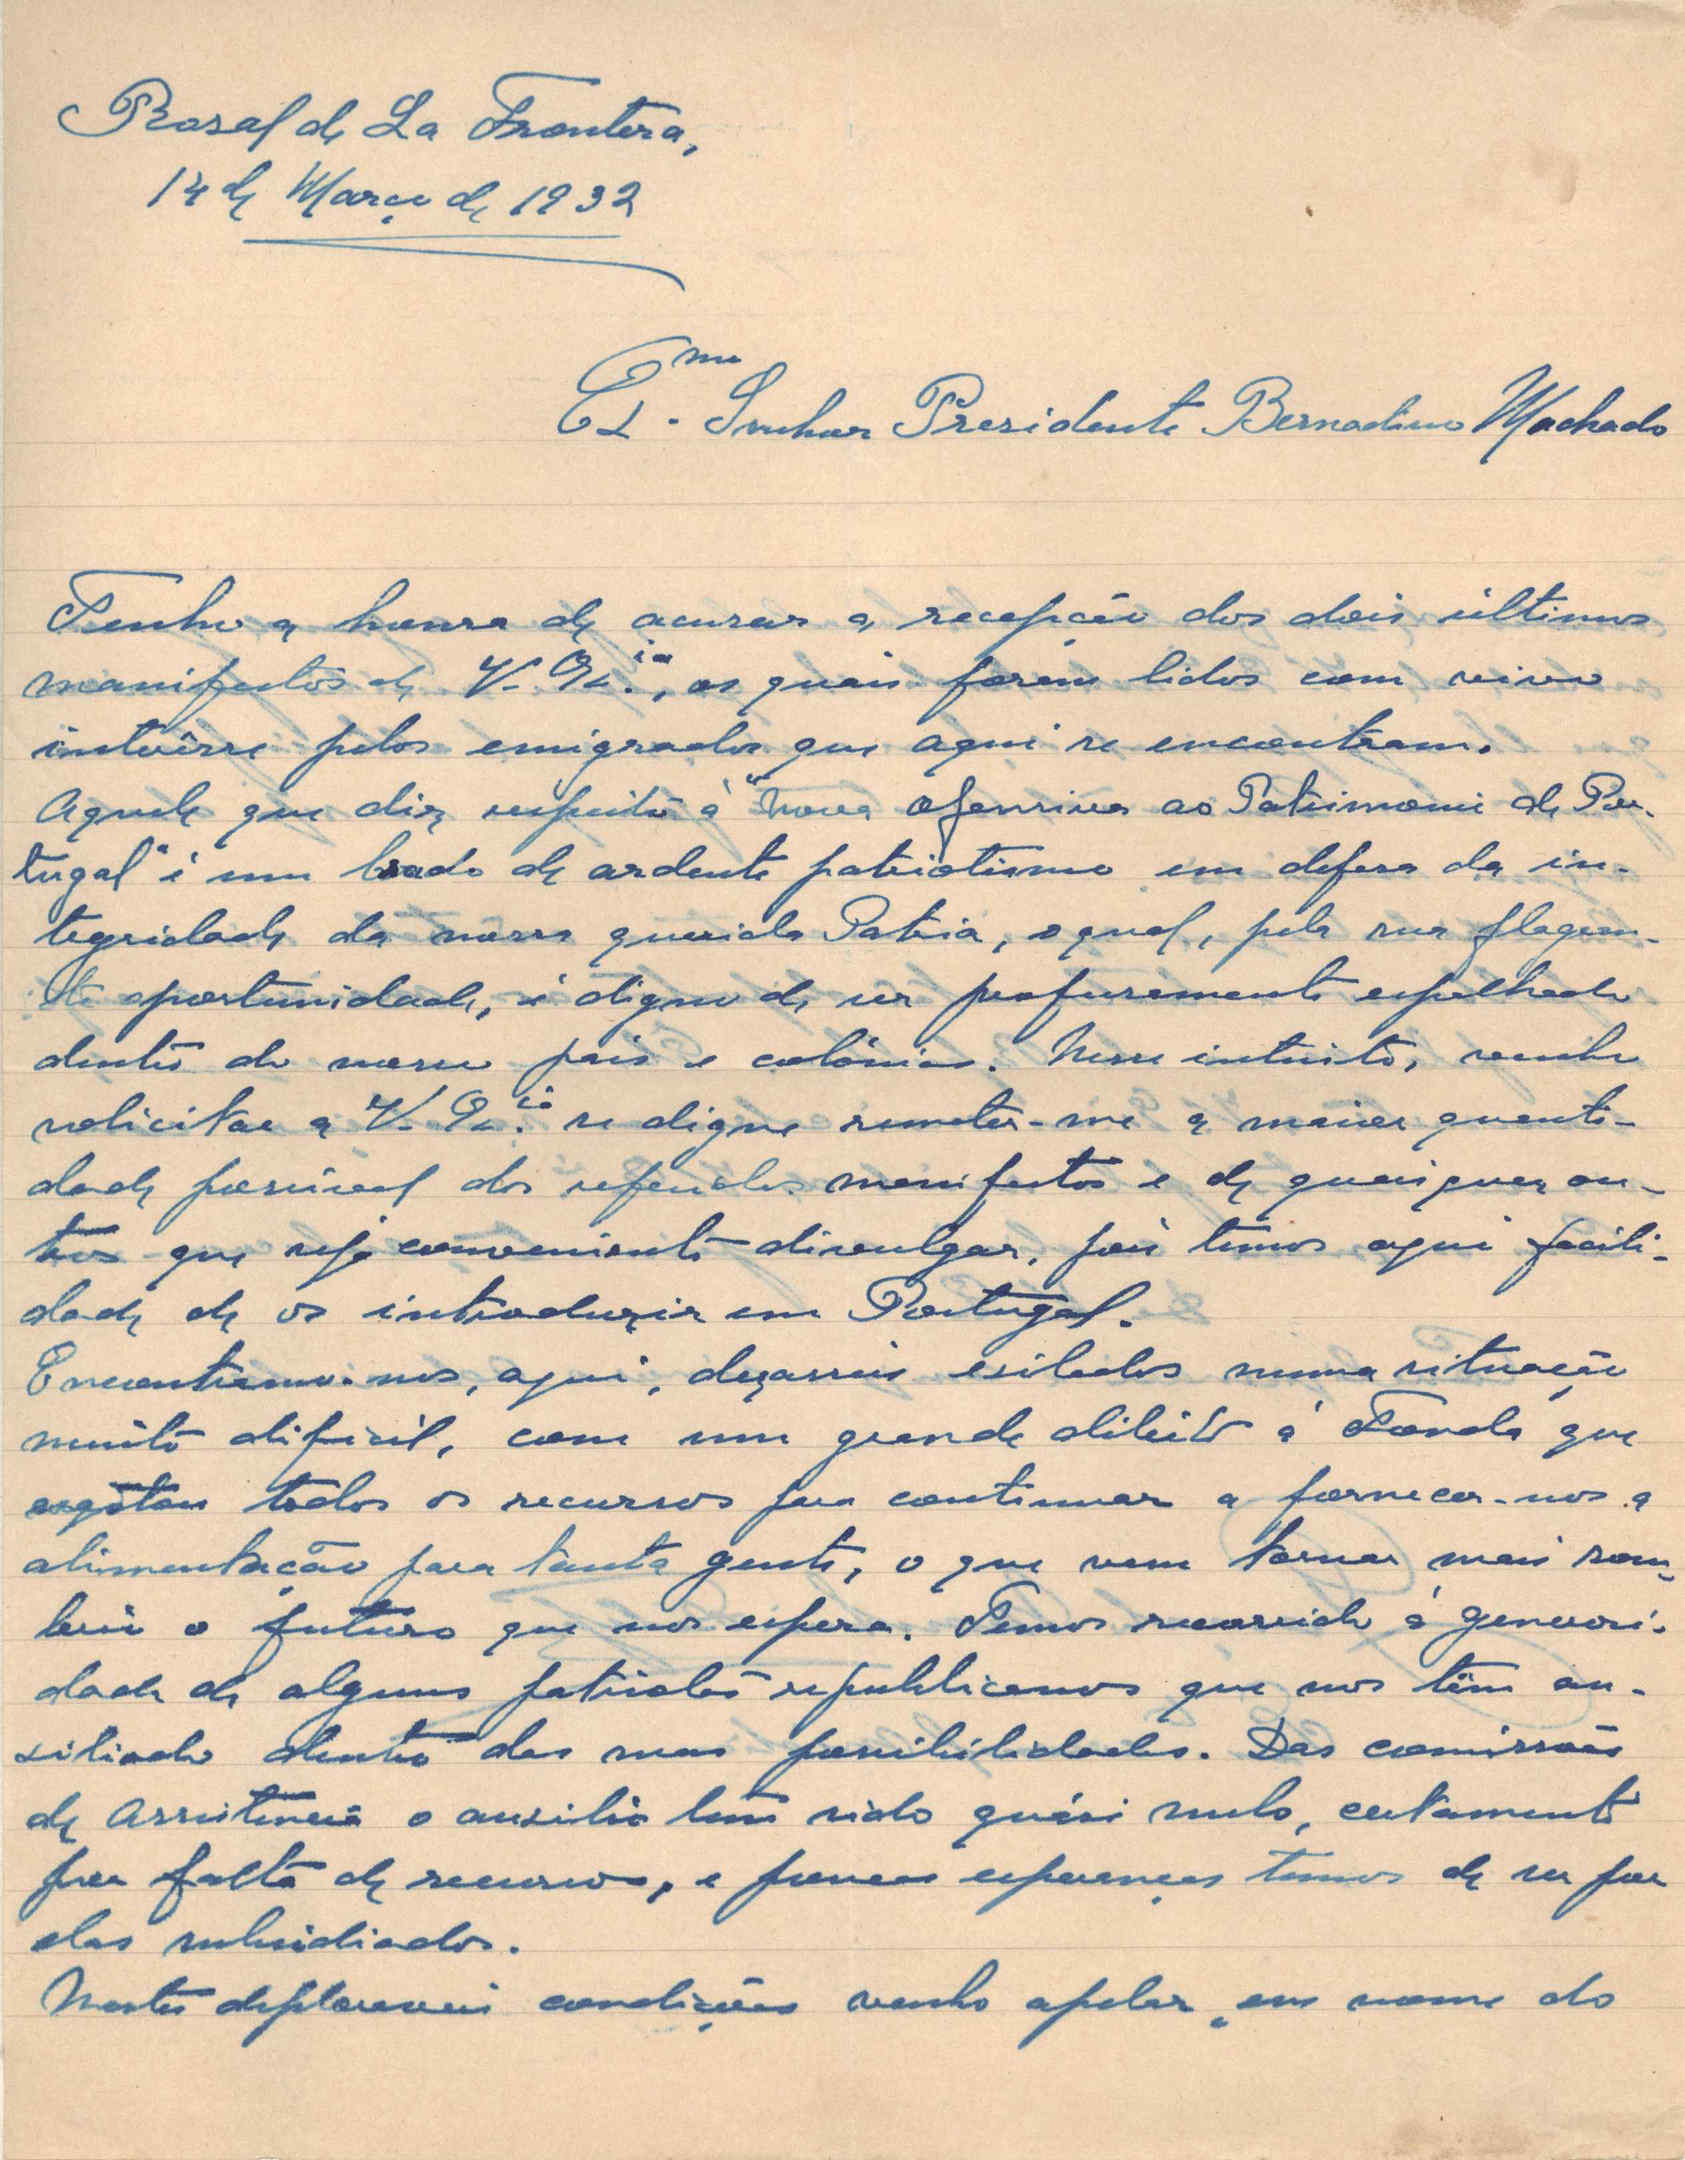 Rosal de La Frontera,
14 de Março de 1932
Ex.mo Senhor Presidente Bernadino Machado
Tenho a honra de acusar a recepção dos dois últimos
manifestos de V. Ex.ia, os quais foram lidos com vivo
interêsse pelos emigrados que aqui se encontram.
Aquele que diz respeito à "Nova ofensiva ao Patrimonio de Por-
tugal" é um brado de ardente patriotismo em defesa da in-
tegridade da nossa querida Patria, o qual, pela sua flagran-
te oportunidade, é digno de ser profusamente espalhado
dentro do nosso país e colónias. Nesse intuito, venho
solicitar a V. Ex.ia se digne remeter-me a maior quanti-
dade possivel dos referidos manifestos e de quaisquer ou-
tros que seja conveniente divulgar, pois temos aqui facili-
dade de os introduzir em Portugal.
Encontramo-nos, aqui, dezasseis exilados numa situação
muito dificil, com um grande débito à Fonda que
esgotou todos os recursos para continuar a fornecer-nos a
alimentação para tanta gente, o que vem tornar mais som-
brio o futuro que nos espera. Temos recorrido à generosi-
dade de alguns patriotas republicanos que nos têm au-
xiliado dentro das suas possibilidades. Das comissões
de Assistência o auxilio tem sido quási nulo, certamente
por falta de recursos, e poucas esperanças temos de ser por
elas subsidiados.
Nestas deploraveis condições venho apelar, em nome do